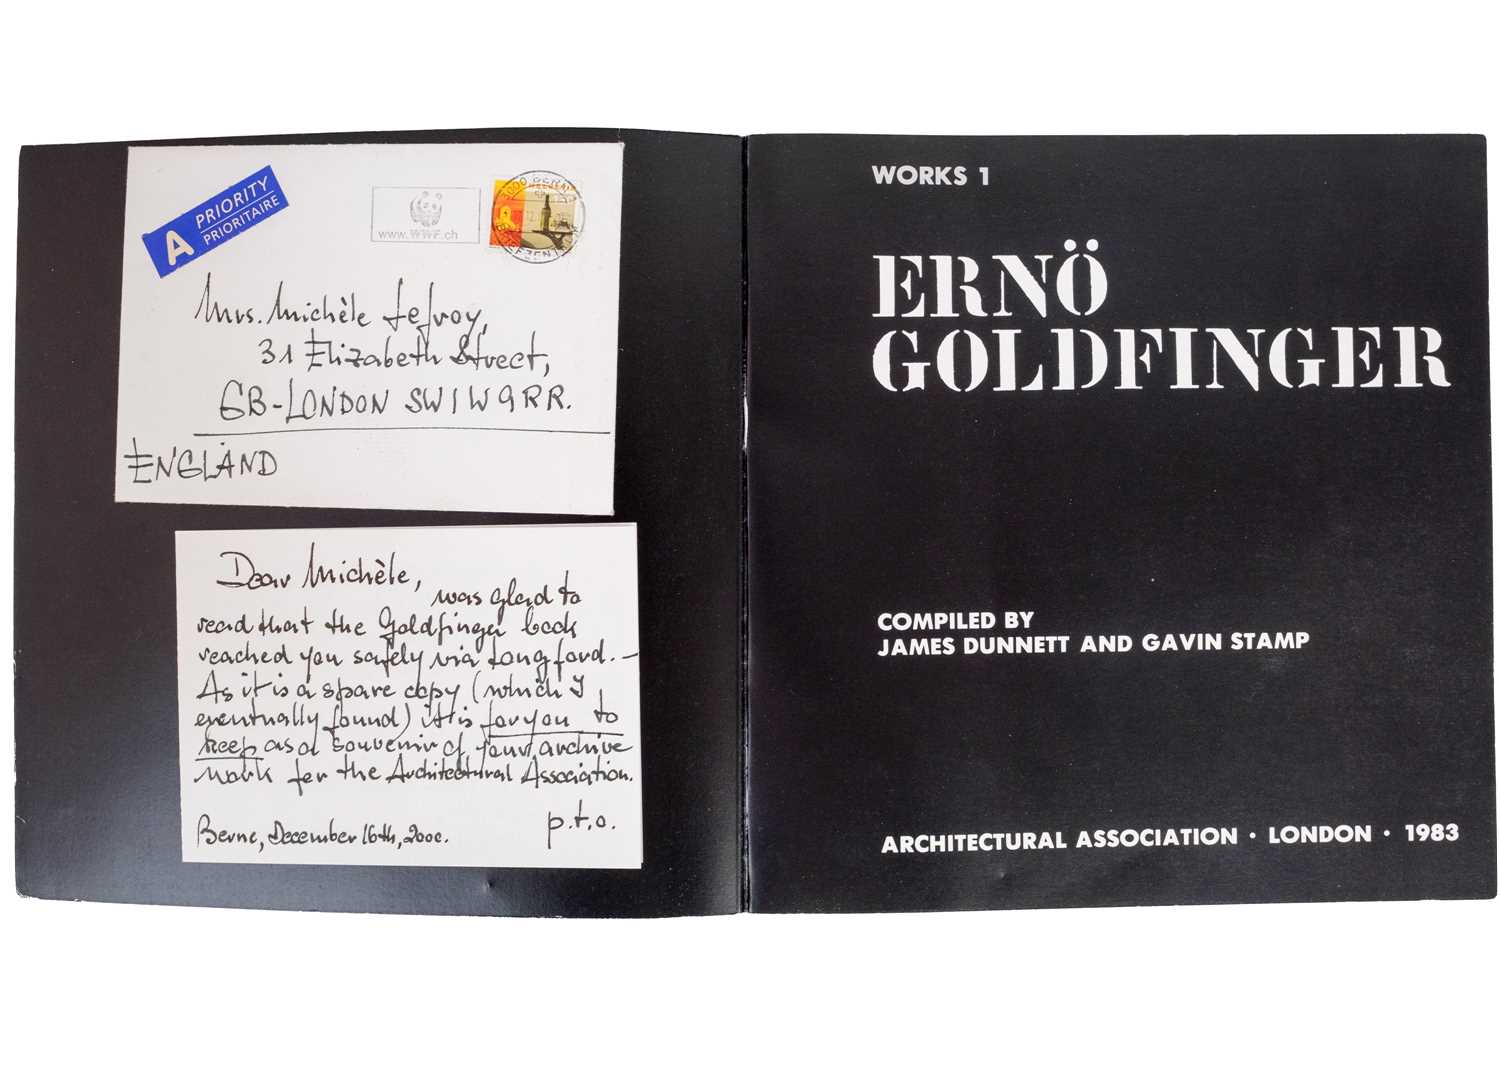 A PRIORITY
PRIORITAIRE
www.WWF.ch
Mrs. Michèle Lefroy,
31 Elizabeth Street,
GB-LONDON SW1W9RR.
ENGLAND
Dear Michèle,
was glad to
read that the Goldfinger book
reached you safely via Longford.—
As it is a spare copy (which I
eventually found) it is for you to
keep as a souvenir of your archive
work for the Architectural Association.
p.t.o.
Berne, December 16th, 2000.
WORKS 1
ERNÖ
GOLDFINGER
COMPILED BY
JAMES DUNNETT AND GAVIN STAMP
ARCHITECTURAL ASSOCIATION · LONDON · 1983